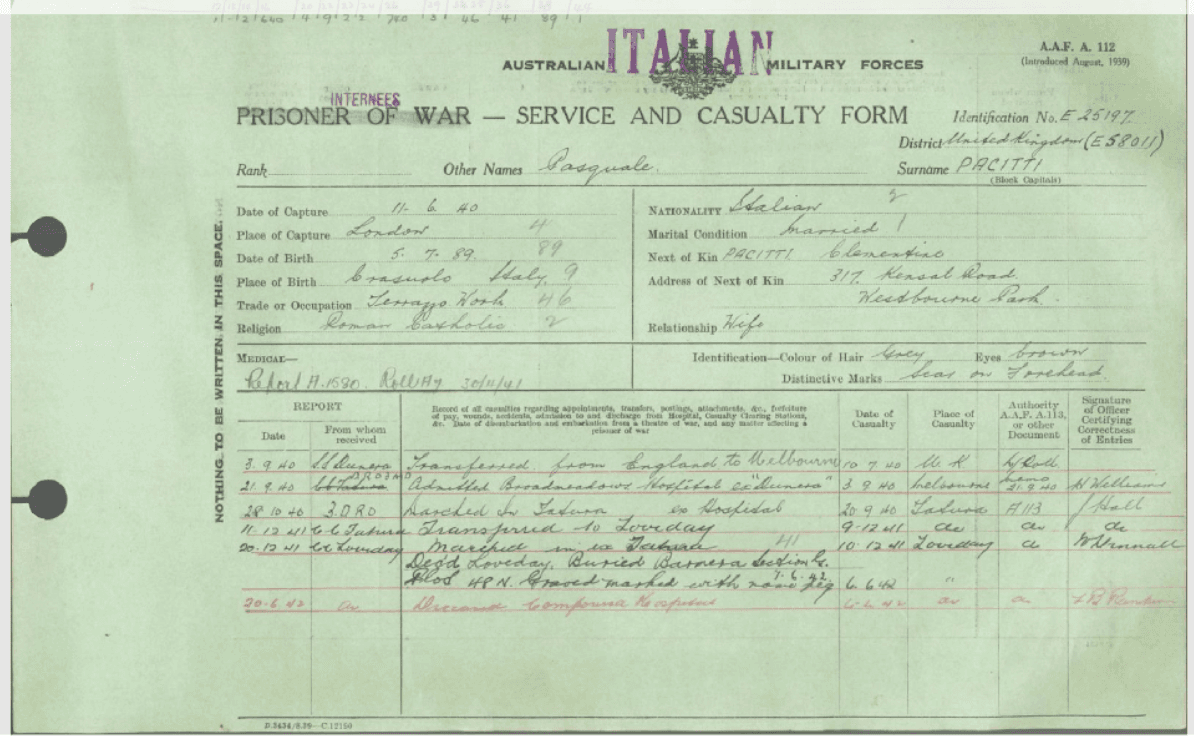 ITALIAN
AUSTRALIAN MILITARY FORCES
A.A.F. A. 112
(Introduced August, 1939)
INTERNEES
PRISONER OF WAR — SERVICE AND CASUALTY FORM
Identification No. E 25197
District United Kingdom (E 58011)
Rank Other Names Pasquale.
Surname PACITTI
(Block Capitals)
NOTHING TO BE WRITTEN IN THIS SPACE.
Date of Capture 11. 6. 40
Place of Capture London 4
Date of Birth 5. 7. 89. 89
Place of Birth Italy. 9
Trade or Occupation Terrazzo Work 46
Religion Roman Catholic 2
NATIONALITY Italian 2
Marital Condition Married 1
Next of Kin PACITTI Clementina
Address of Next of Kin 317. Kensal Road.
Westbourne Park.
Relationship Wife
MEDICAL—
Report A.1580. Roll 30/11/41
Identification—Colour of Hair Grey Eyes brown
Distinctive Marks Scar on Forehead.
REPORT
Date
From whom received
Record of all casualties regarding appointments, transfers, postings, attachments, &c., forfeiture
of pay, wounds, accidents, admission to and discharge from Hospital, Casualty Clearing Stations,
&c. Date of disembarkation and embarkation from a theatre of war, and any matter affecting a
prisoner of war
Date of Casualty
Place of Casualty
Authority A.A.F. A.113, or other Document
Signature of Officer Certifying Correctness of Entries
3. 9. 40 SS Dunera Transferred from England to Melbourne 10 7 40 U.K. Roll
21. 9. 40 Admitted Broadmeadows Hospital ex "Dunera" 3 9 40 Melbourne memo 21 9 40 H Williams
28 10 40 3 DRO Marched In Tatura ex Hospital 20 9 40 Tatura A113 J Hall
11. 12 41 CC Tatura Transferred to Loveday 9. 12 41 do do do
20. 12 41 CC Loveday Marched in ex Tatura 41 10. 12 41 Loveday do
Dec'd Loveday. Buried Barmera Section G.
7. 6. 42
Plot 48 N. Graved marked with name peg 6. 6 42 "
20. 6 42 do Deceased Compound Hospital 6. 6. 42 do do
D.3434/8.39—C.12150